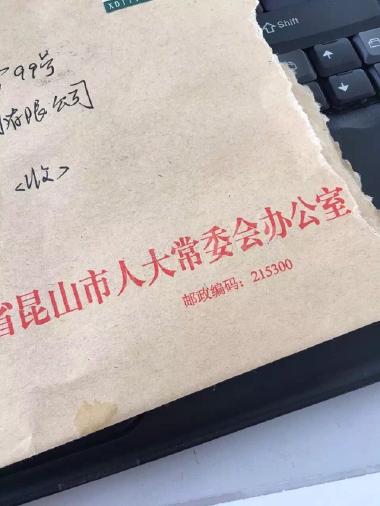 99号
有限公司
<收>
省昆山市人大常委会办公室
邮政编码：215300
Shift